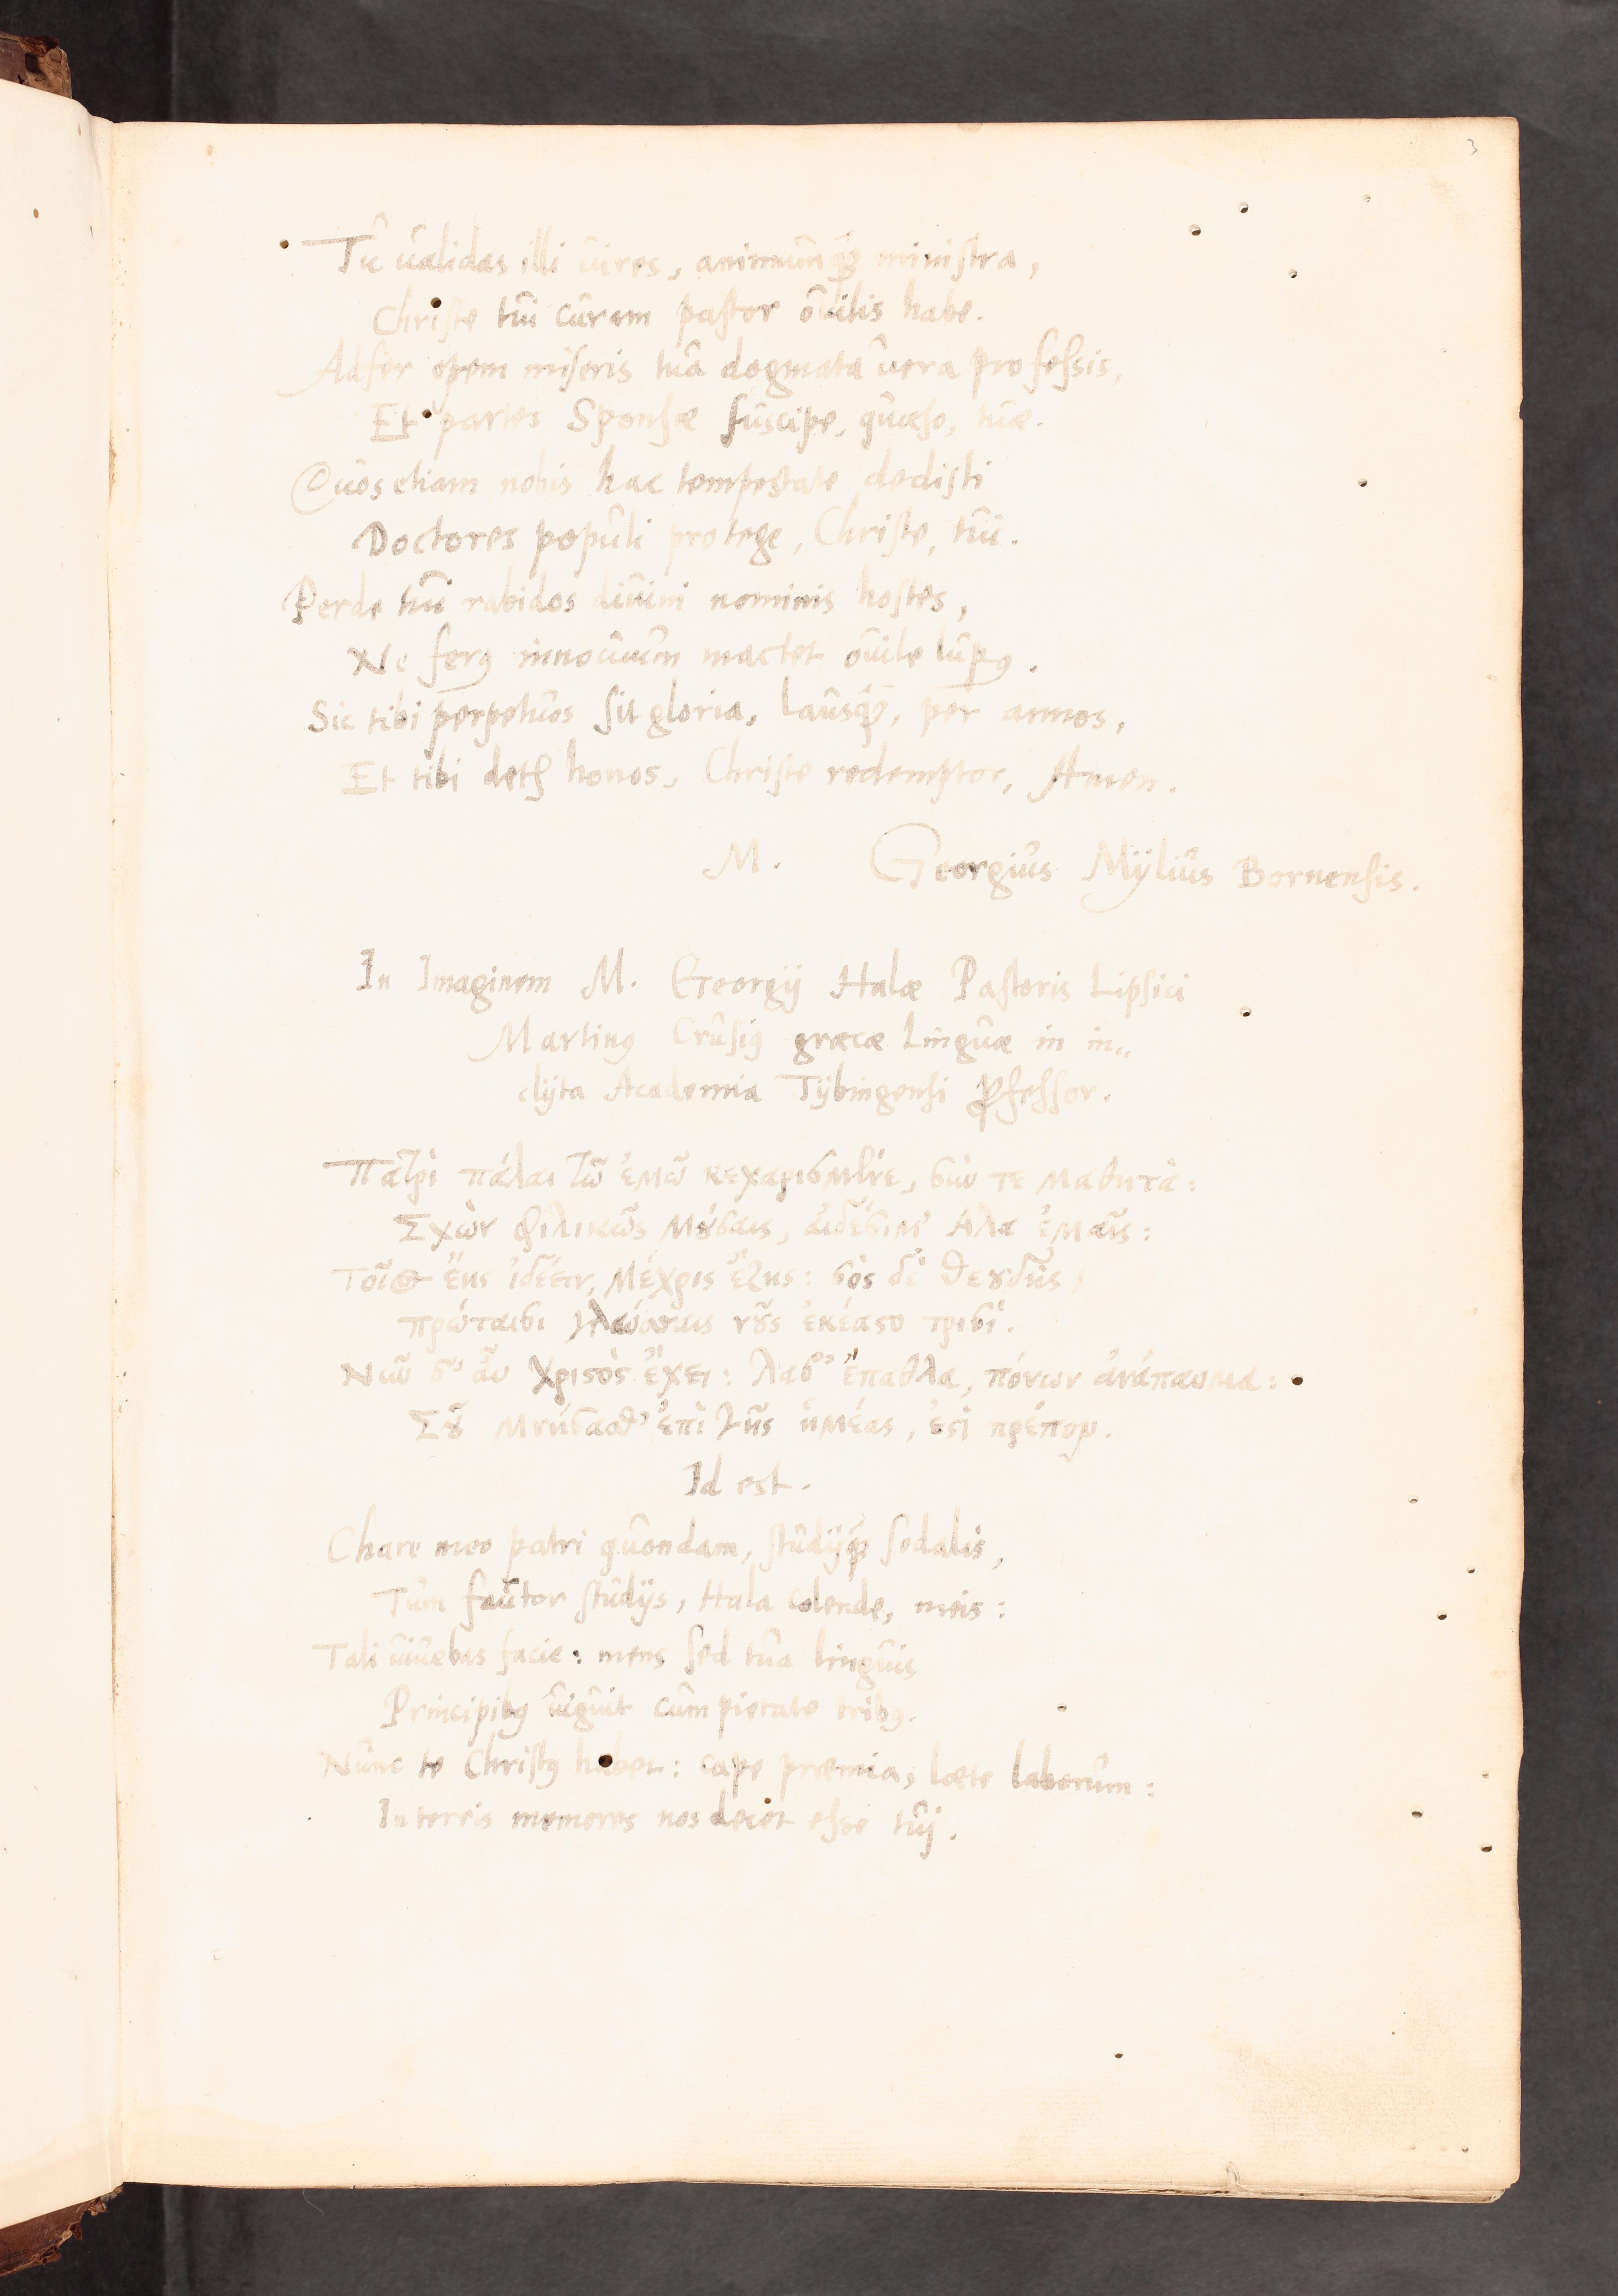 3
Tu validas illi vires, animumq́ꝫ ministra,
Christe tui curam pastor ovilis habe.
Adfer opem miseris tua dogmata vera professis,
Et partes Sponsæ suscipe, quæso, tuæ.
Quos etiam nobis hac tempestate dedisti
Doctores populi protege, Christe, tui.
Perde tui rabidos divini nominis hostes,
Ne ferꝰ innocuum mactet ovile lupꝰ.
Sic tibi perpetuos sit gloria, lausq́ꝫ, per annos,
Et tibi det᷑ honos, Christe redemptor, Amen.
M. Georgius Mylius Bornensis.
In Imaginem M. Georgij Halæ Pastoris Lipsici
Martinꝰ Crusiꝰ græcæ Linguæ in in„
clyta Academia Tybingensi ꝓfessor.
Πατρὶ πάλαι τῶ ἐμῶ κεχαρισμένε, σύν τε μαθητὰ:
φιλικῶς Μούσαις, Αλα ἐμαῖς:
ἰδέειν, μέχρις ἔζης: σὸς δὲ
πρώταισι γλώσσαις νοῦς ἐκέαστο τρισί.
Νῦν σ’ ἂν χριστὸς ἔχει: λάβ’ ἔπαθλα, πόνων ἀνάπαυμα:
Σοῦ μνήσασθ’ ἐπὶ γῆς ἡμέας, ἐστὶ πρέπον.
Id est.
Chare meo patri quondam, studijq́ꝫ sodalis,
Tum fautor studijs, Hala colende, meis:
Tali vivebas facie: mens sed tua linguis
Principibꝰ viguit cum pietate tribꝰ.
Nunc te Christꝰ habet: cape præmia, læte laborum:
In terris memores nos decet esse tuj.